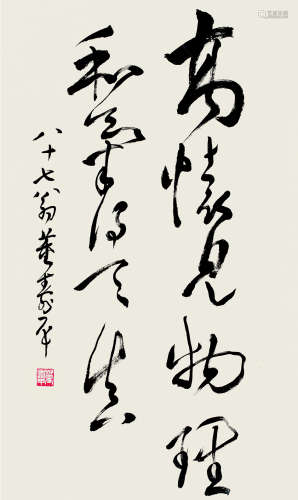 高懷見物理
和氣得天真
八十七翁董壽平